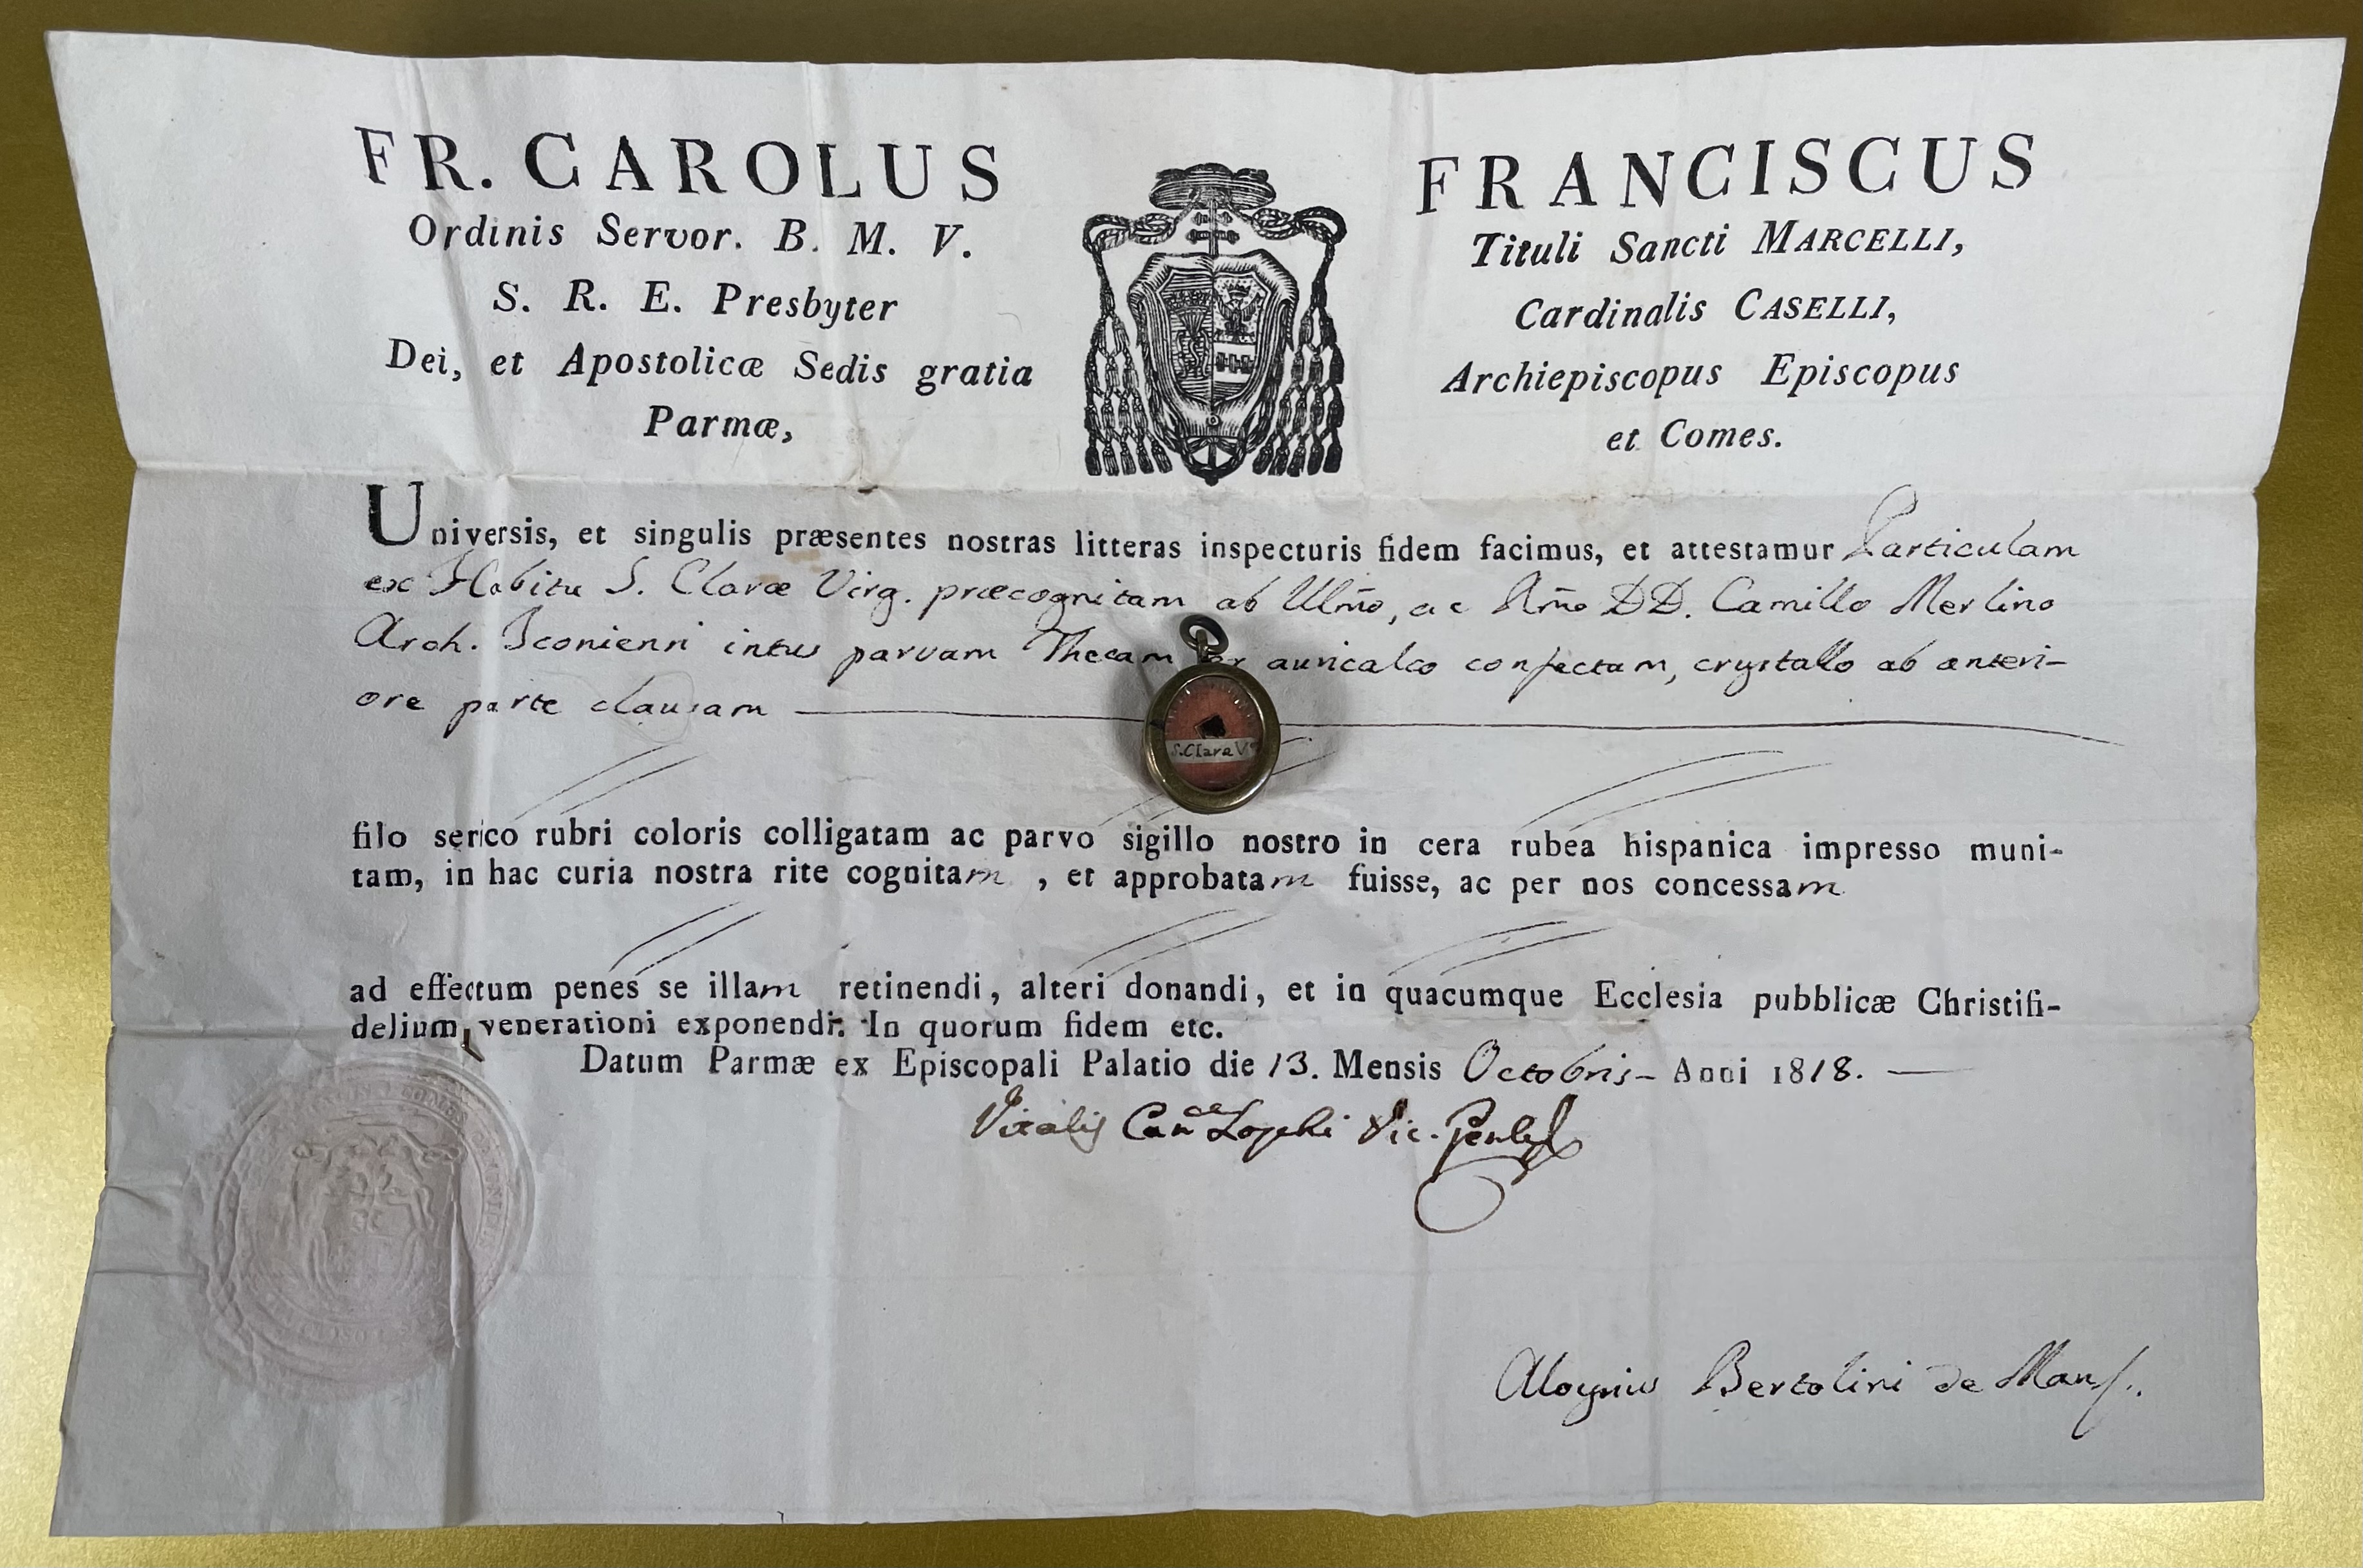 FR. CAROLUS FRANCISCUS
Ordinis Servor. B. M. V. Tituli Sancti MARCELLI,
S. R. E. Presbyter Cardinalis CASELLI,
Dei, et Apostolicæ Sedis gratia Archiepiscopus Episcopus
Parmæ, et Comes.
Universis, et singulis præsentes nostras litteras inspecturis fidem facimus, et attestamur Particulam
ex Habitu S. Claræ Virg. præcognitam ab Illmo, ac Rmo DD. Camillo Merlino
Arch. Iconiensi intus parvam Thecam ex auricalco confectam, crystallo ab anteri-
ore parte clausam
S. Clara V.
filo serico rubri coloris colligatam ac parvo sigillo nostro in cera rubea hispanica impresso muni-
tam, in hac curia nostra rite cognitam , et approbatam fuisse, ac per nos concessam
ad effectum penes se illam retinendi, alteri donandi, et in quacumque Ecclesia pubblicæ Christifi-
delium venerationi exponendi. In quorum fidem etc.
Datum Parmæ ex Episcopali Palatio die 13. Mensis Octobris - Anni 1818.
Vitalis Can. Loschi Vic. Genlis
Aloysius Bertolini de Mand.